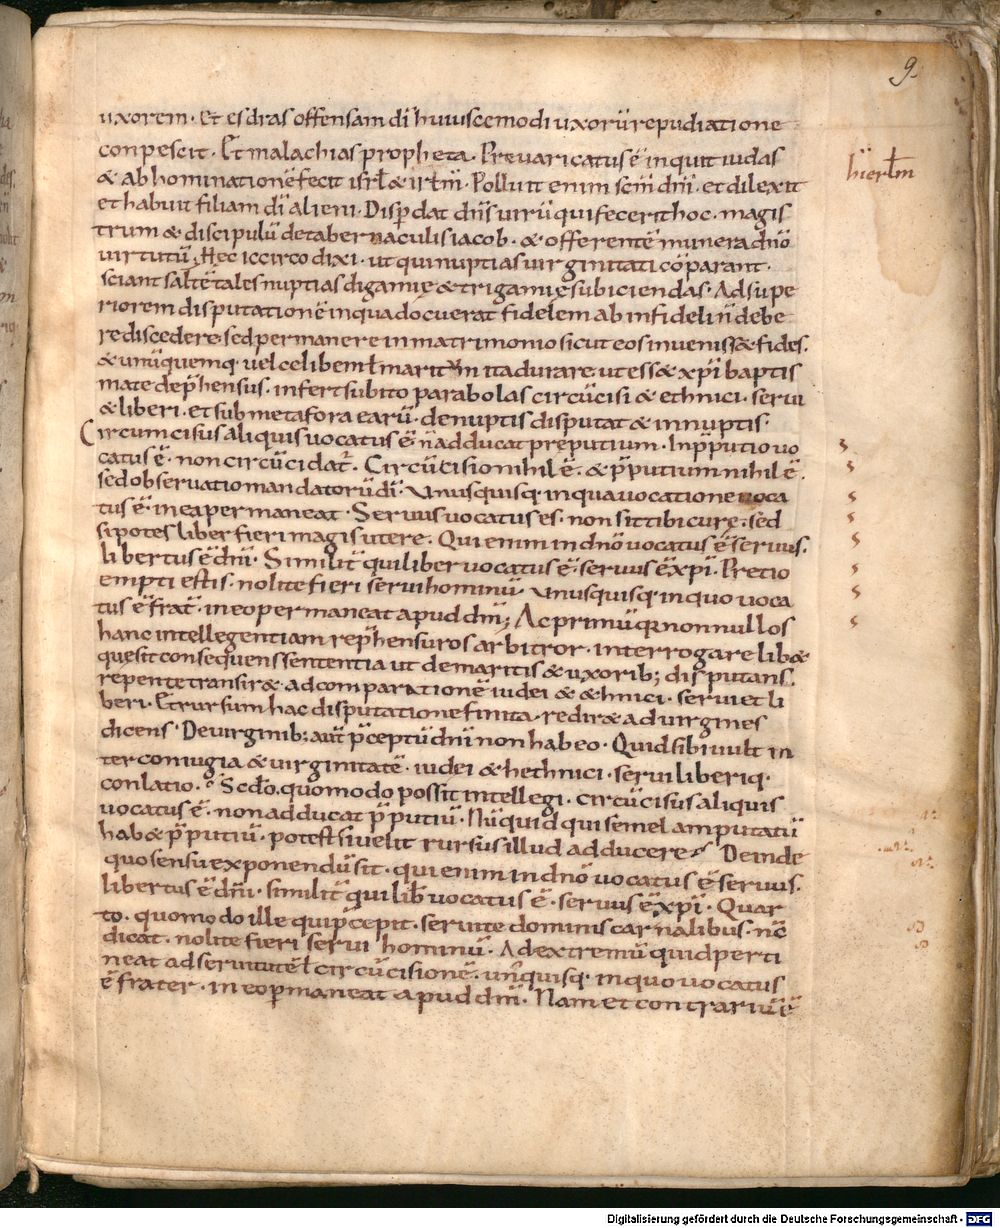 9
uxorem · Et esdras offensam dī huiuscemodi uxorū repudiatione
conpescit · Et malachias propheta · Prevaricatus ē inquit iudas
& abhominationē fecit isrl̄ & irl̄m · Polluit enim scm̄ dnī · et dilexit
hierl̄m
et habuit filiam dī alieni · Disp̄dat dn̄s uirū qui fecerit hoc · magis
trum & discipulū de tabernaculis iacob · & offerentē munera dnō
uirtutū ; Hęc iccirco dixi · ut qui nuptias uirginitati cōparant ·
sciant saltē tales nuptias digamię & trigamię subiciendas · Ad supe
riorem disputationē in qua docuerat fidelem ab infideli n̄ debe
re discedere · sed permanere in matrimonio sicut eos inueniss& fides ·
& unūquemq; uel celibem ł maritum ita durare · ut ess& xp̄i baptis
mate dep̄hensus · infert subito parabolas circūcisi & ethnici · serui
& liberi · et sub metafora earū · de nuptis disputat & innuptis ·
Circumcisus aliquis uocatus ē · n̄ adducat preputium · In p̄putio uo
catus ē · non circūcidat᷑ · Circūcisio nihil ē · & p̄putium nihil ē ·
sed obseruatio mandatorū dī · Unusquisq; in qua uocatione uoca
tus ē · in ea permaneat · Seruus uocatus es · non sit tibi curę · sed
si potes liber fieri magis utere · Qui enim in dnō uocatus ē seruus ·
libertus ē dnī · Similit̄ qui liber uocatus ē · seruus ē xp̄i · Pretio
empti estis · nolite fieri serui hominū · Unusquisq; in quo uoca
tus ē frat̄ · in eo permaneat apud dm̄ ; Ac primū q̄ nonnullos
hanc intellegentiam rep̄hensuros arbitror · interrogare lib&
que sit consequens sententia ut de maritis & uxorib; disputans ·
repente transir& · ad comparationē iudei & &hnici · serui et li
beri · Et rursum hac disputatione finita · redir& ad uirgines
dicens · De uirginib; aut̄ p̄ceptū dnī non habeo · Quid sibi uult in
ter coniugia & uirginitatē · iudei & hethnici · serui liberiq;
conlatio · Sc̄do · quomodo possit intellegi · circūcisus aliquis
uocatus ē · non adducat p̄putiū · Nūquid qui semel amputatū
hab& p̄putiū · potest si uelit rursus illud adducere · Deinde
quo sensu exponendū sit · qui enim in dnō uocatus ē seruus ·
libertus ē dnī · similit̄ qui lib̄ uocatus ē · seruus ē xp̄i · Quar
to · quomodo ille qui p̄cepit · seruite dominis carnalibus · nc̄
dicat · nolite fieri serui hominū · Ad extremū quid perti
neat ad seruitutē ł circūcisionē · unusquisq; in quo uocatus
ē frater · in eo p̄maneat apud dm̄ · Nam et contrariū ē
Digitalisierung gefördert durch die Deutsche Forschungsgemeinschaft - DFG